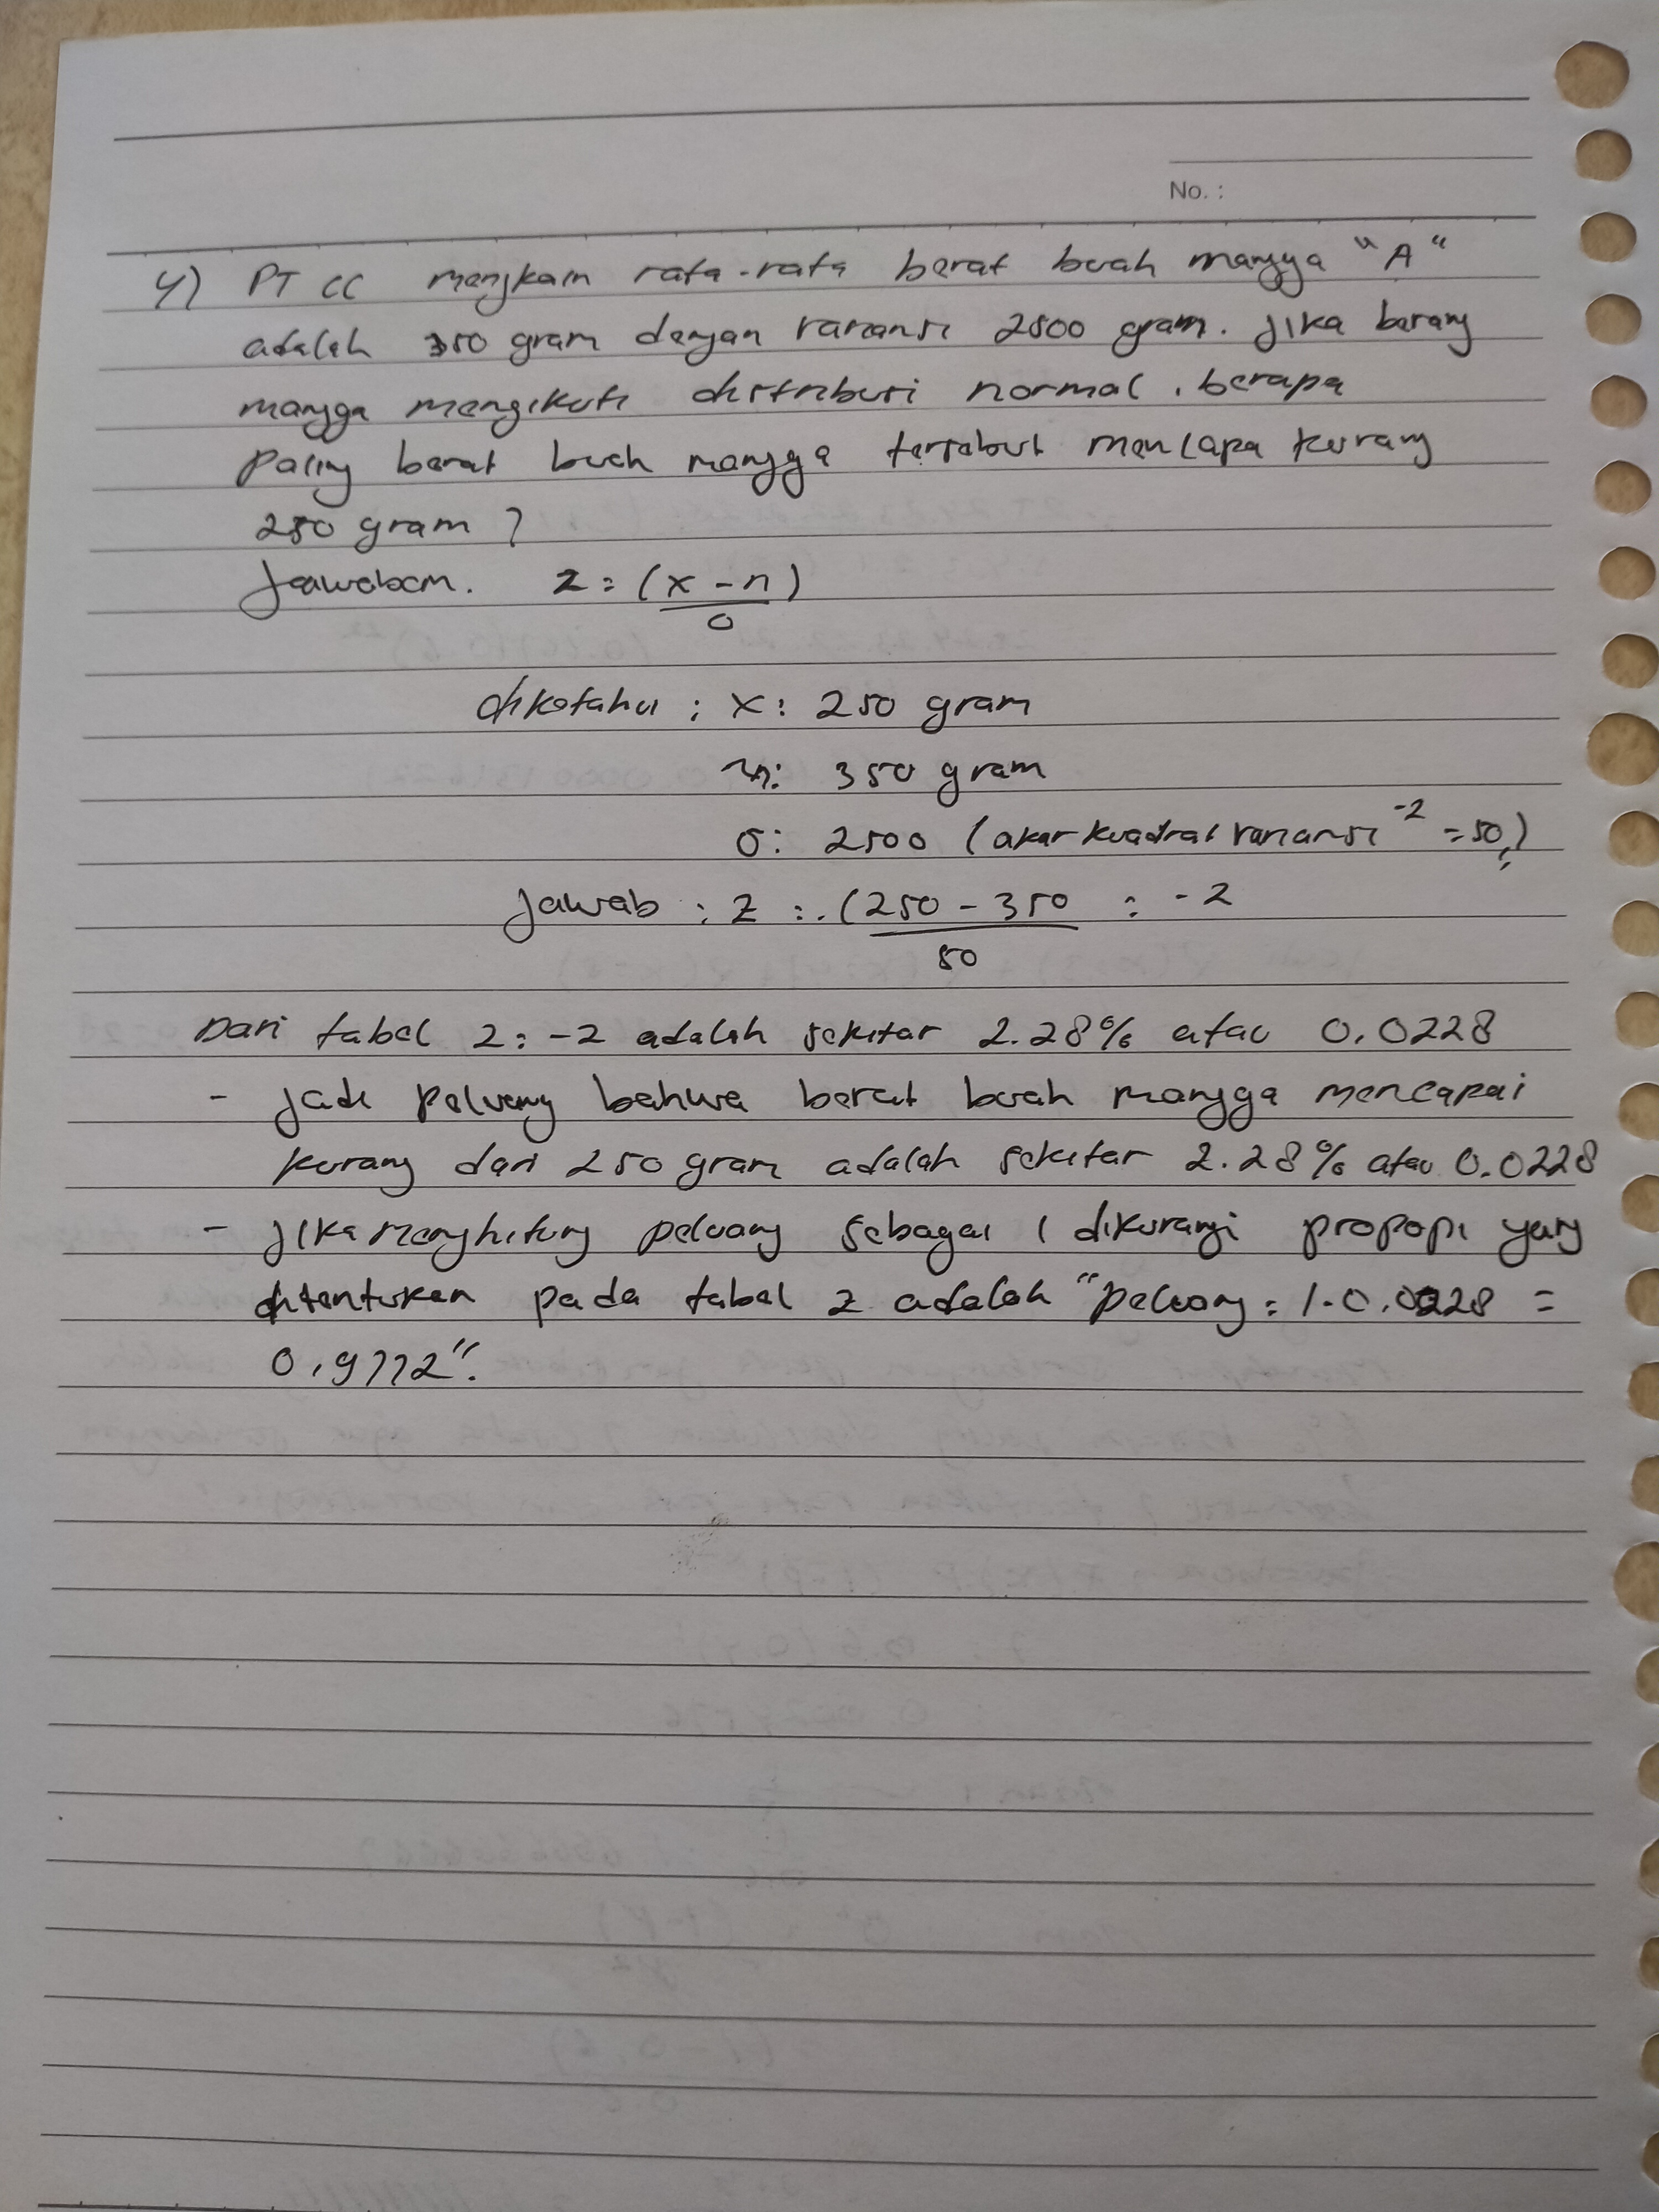 No. :
4) PT CC mengkaim rata-rata berat buah mangga "A"
adalah 350 gram dengan variansi 2500 gram. Jika barang
mangga mengikuti distribusi normal, berapa
paling berat buah mangga tersebut mencapa kurang
250 gram ?
Jawaban. Z = (x - n)
σ
diketahui : x : 250 gram
n : 350 gram
σ : 2500 (akar kuadrat variansi -2 = 50,)
Jawab : Z = (250 - 350 = -2
50
Dari tabel Z = -2 adalah sekitar 2.28% atau 0.0228
- Jadi peluang bahwa berat buah mangga mencapai
kurang dari 250 gram adalah sekitar 2.28% atau 0.0228
- Jika menghitung peluang sebagai 1 dikurangi propopi yang
ditentukan pada tabel z adalah "peluang = 1-0.0228 =
0,9772".